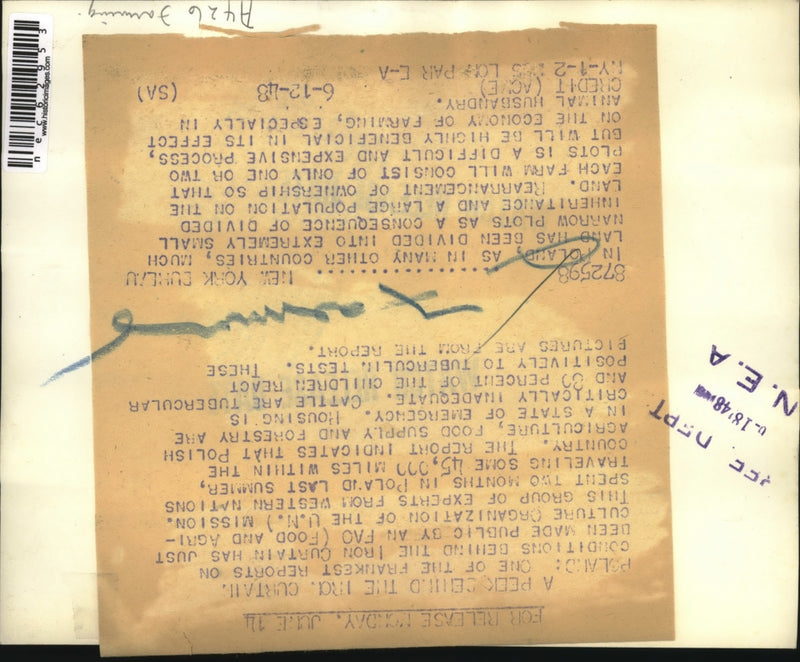 FOR RELEASE MONDAY, JUNE 14
A PEEK BEHIND THE IRON CURTAIN.
POLAND: ONE OF THE FRANKEST REPORTS ON
CONDITIONS BEHIND THE IRON CURTAIN HAS JUST
BEEN MADE PUBLIC BY AN FAO (FOOD AND AGRI-
CULTURE ORGANIZATION OF THE U.N.) MISSION.
THIS GROUP OF EXPERTS FROM WESTERN NATIONS
SPENT TWO MONTHS IN POLAND LAST SUMMER,
TRAVELING SOME 45,000 MILES WITHIN THE
COUNTRY. THE REPORT INDICATES THAT POLISH
AGRICULTURE, FOOD SUPPLY AND FORESTRY ARE
IN A STATE OF EMERGENCY. HOUSING IS
CRITICALLY INADEQUATE. CATTLE ARE TUBERCULAR
AND 80 PERCENT OF THE CHILDREN REACT
POSITIVELY TO TUBERCULIN TESTS. THESE
PICTURES ARE FROM THE REPORT.
Farming
872598 ............... NEW YORK BUREAU
IN POLAND, AS IN MANY OTHER COUNTRIES, MUCH
LAND HAS BEEN DIVIDED INTO EXTREMELY SMALL
NARROW PLOTS AS A CONSEQUENCE OF DIVIDED
INHERITANCE AND A LARGE POPULATION ON THE
LAND. REARRANGEMENT OF OWNERSHIP SO THAT
EACH FARM WILL CONSIST OF ONLY ONE OR TWO
PLOTS IS A DIFFICULT AND EXPENSIVE PROCESS,
BUT WILL BE HIGHLY BENEFICIAL IN ITS EFFECT
ON THE ECONOMY OF FARMING, ESPECIALLY IN
ANIMAL HUSBANDRY.
CREDIT (ACME) 6-12-48 (SA)
NY-1-2 LON PAR E-A
A426 Farming
N.E.A
REF DEPT
nec62953
www.historicimages.com